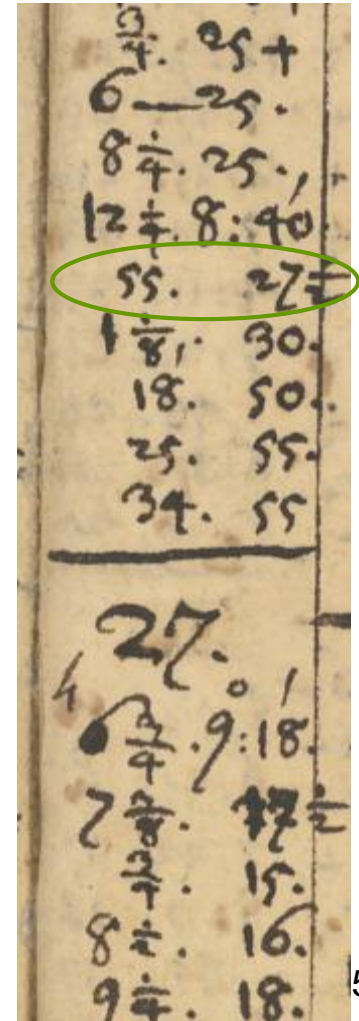 3/4. 25 +
6 — 25.
8 1/4. 25.
12 1/4. 8: 40'.
55. 27 1/2
1 1/8. 30.
18. 50.
25. 55.
34. 55
27.
h ° '
6 3/4. 9:18.
7 3/8. 17 1/2
3/4. 15.
8 1/2. 16.
9 1/4. 18.
5